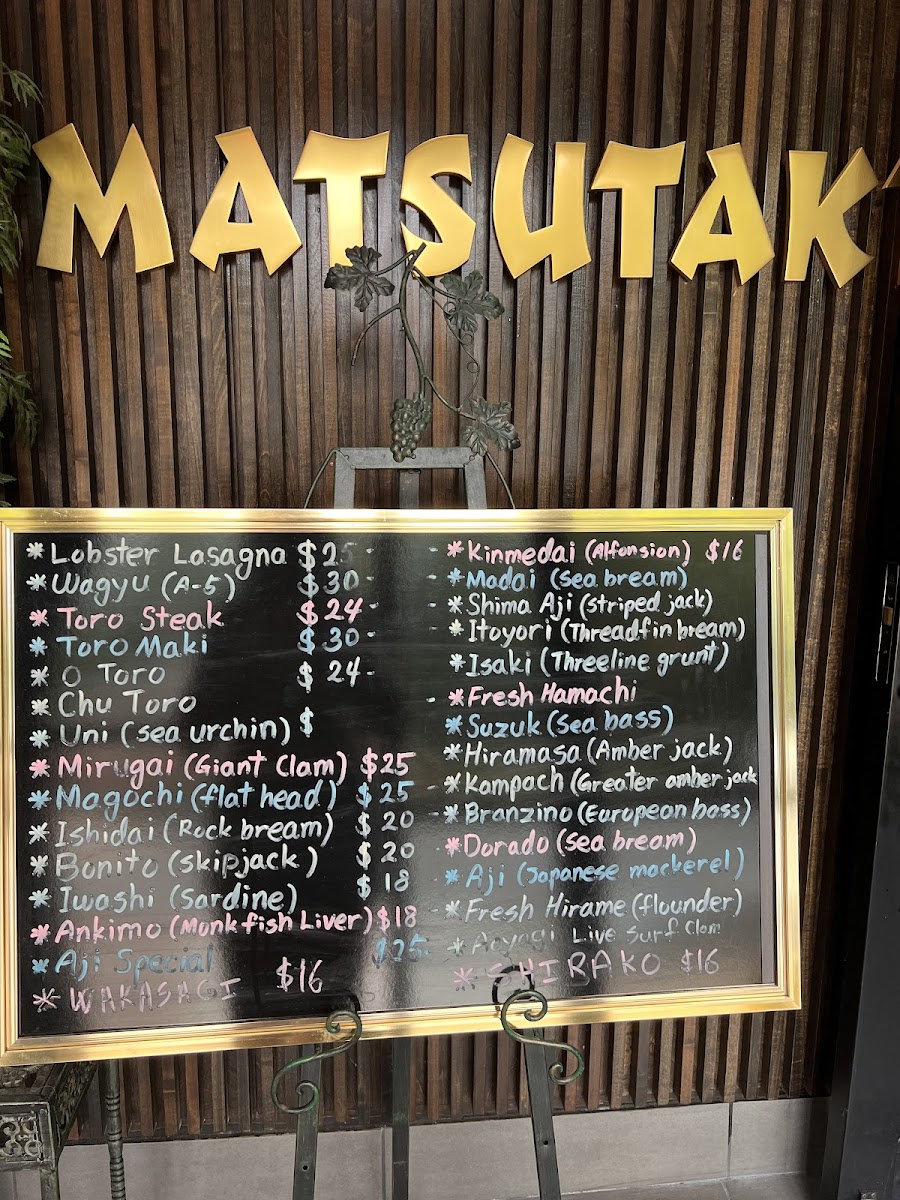 MATSUTAK
* Lobster Lasagna $25-
* Wagyu (A-5) $30-
* Toro Steak $24-
* Toro Maki $30-
* O Toro $24-
* Chu Toro
* Uni (sea urchin) $
* Mirugai (Giant Clam) $25
* Magochi (flat head) $25
* Ishidai (Rock bream) $20
* Bonito (skipjack) $20
* Iwashi (Sardine) $18
* Ankimo (Monk fish Liver) $18
* Aji Special $25
* WAKASAGI $16
* Kinmedai (Alfonsion) $16
* Madai (sea bream)
* Shima Aji (striped jack)
* Itoyori (Threadfin bream)
* Isaki (Threeline grunt)
* Fresh Hamachi
* Suzuk (Sea bass)
* Hiramasa (Amber jack)
* Kampach (Greater amber jack
* Branzino (European bass)
* Dorado (sea bream)
* Aji (Japanese mackerel)
* Fresh Hirame (flounder)
* Aoyagi Live Surf Clam
* SHIRAKO $16